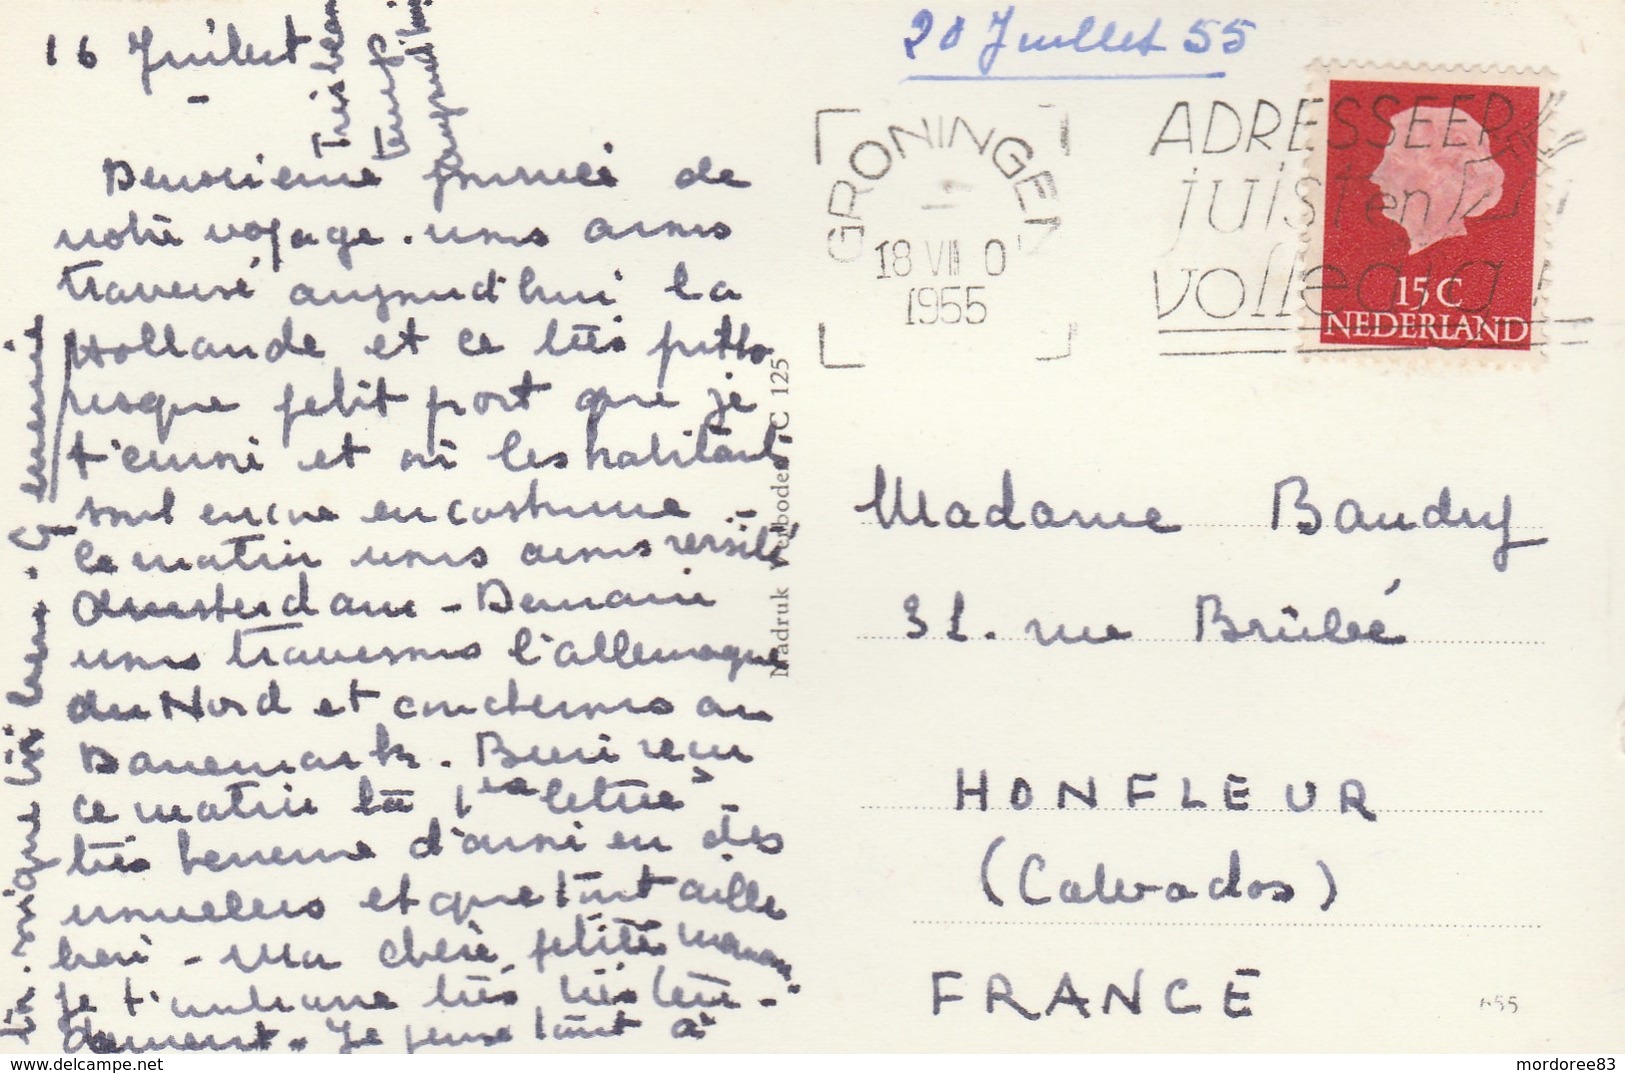 16 Juillet
Très beau
temps
aujourd'hui
Deuxième journée de
notre voyage. nous avons
traversé aujourd'hui la
Hollande et ce très pitto
resque petit port que je
t'envoie et où les habitants
sont encore en costume -
ce matin nous avons visité
Amsterdam - Demain
nous traversons l'allemagne
du Nord et coucherons au
Danemark. Bien reçu
ce matin ta 1ère lettre -
très heureuse d'avoir eu des
nouvelles et que tout aille
bien - Ma chère petite maman
je t'embrasse très, très ten-
drement. Je pense tant à
20 Juillet 55
GRONINGEN
18 VII 0
1955
ADRESSEER
juist en
volledig
15 C
NEDERLAND
Madame Baudry
31. rue Brûlée
HONFLEUR
(Calvados)
FRANCE
655
Madruk C 125
mordoree83